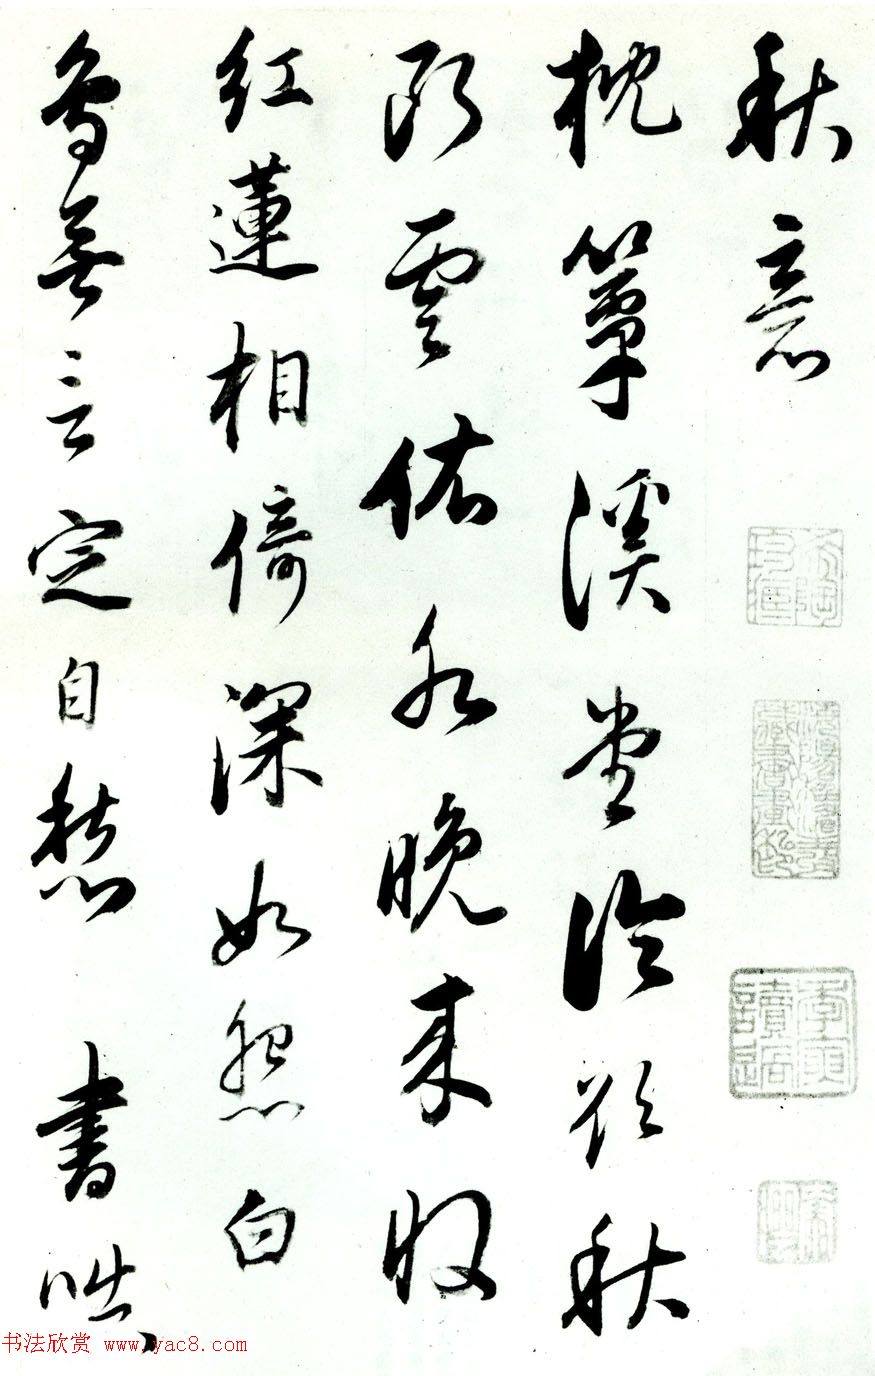 秋意
枕簟溪堂冷欲秋
断雲依水晚来收
红蓮相倚深如怨白
鸟無言定自愁 書咄
书法欣赏 www.yac8.com